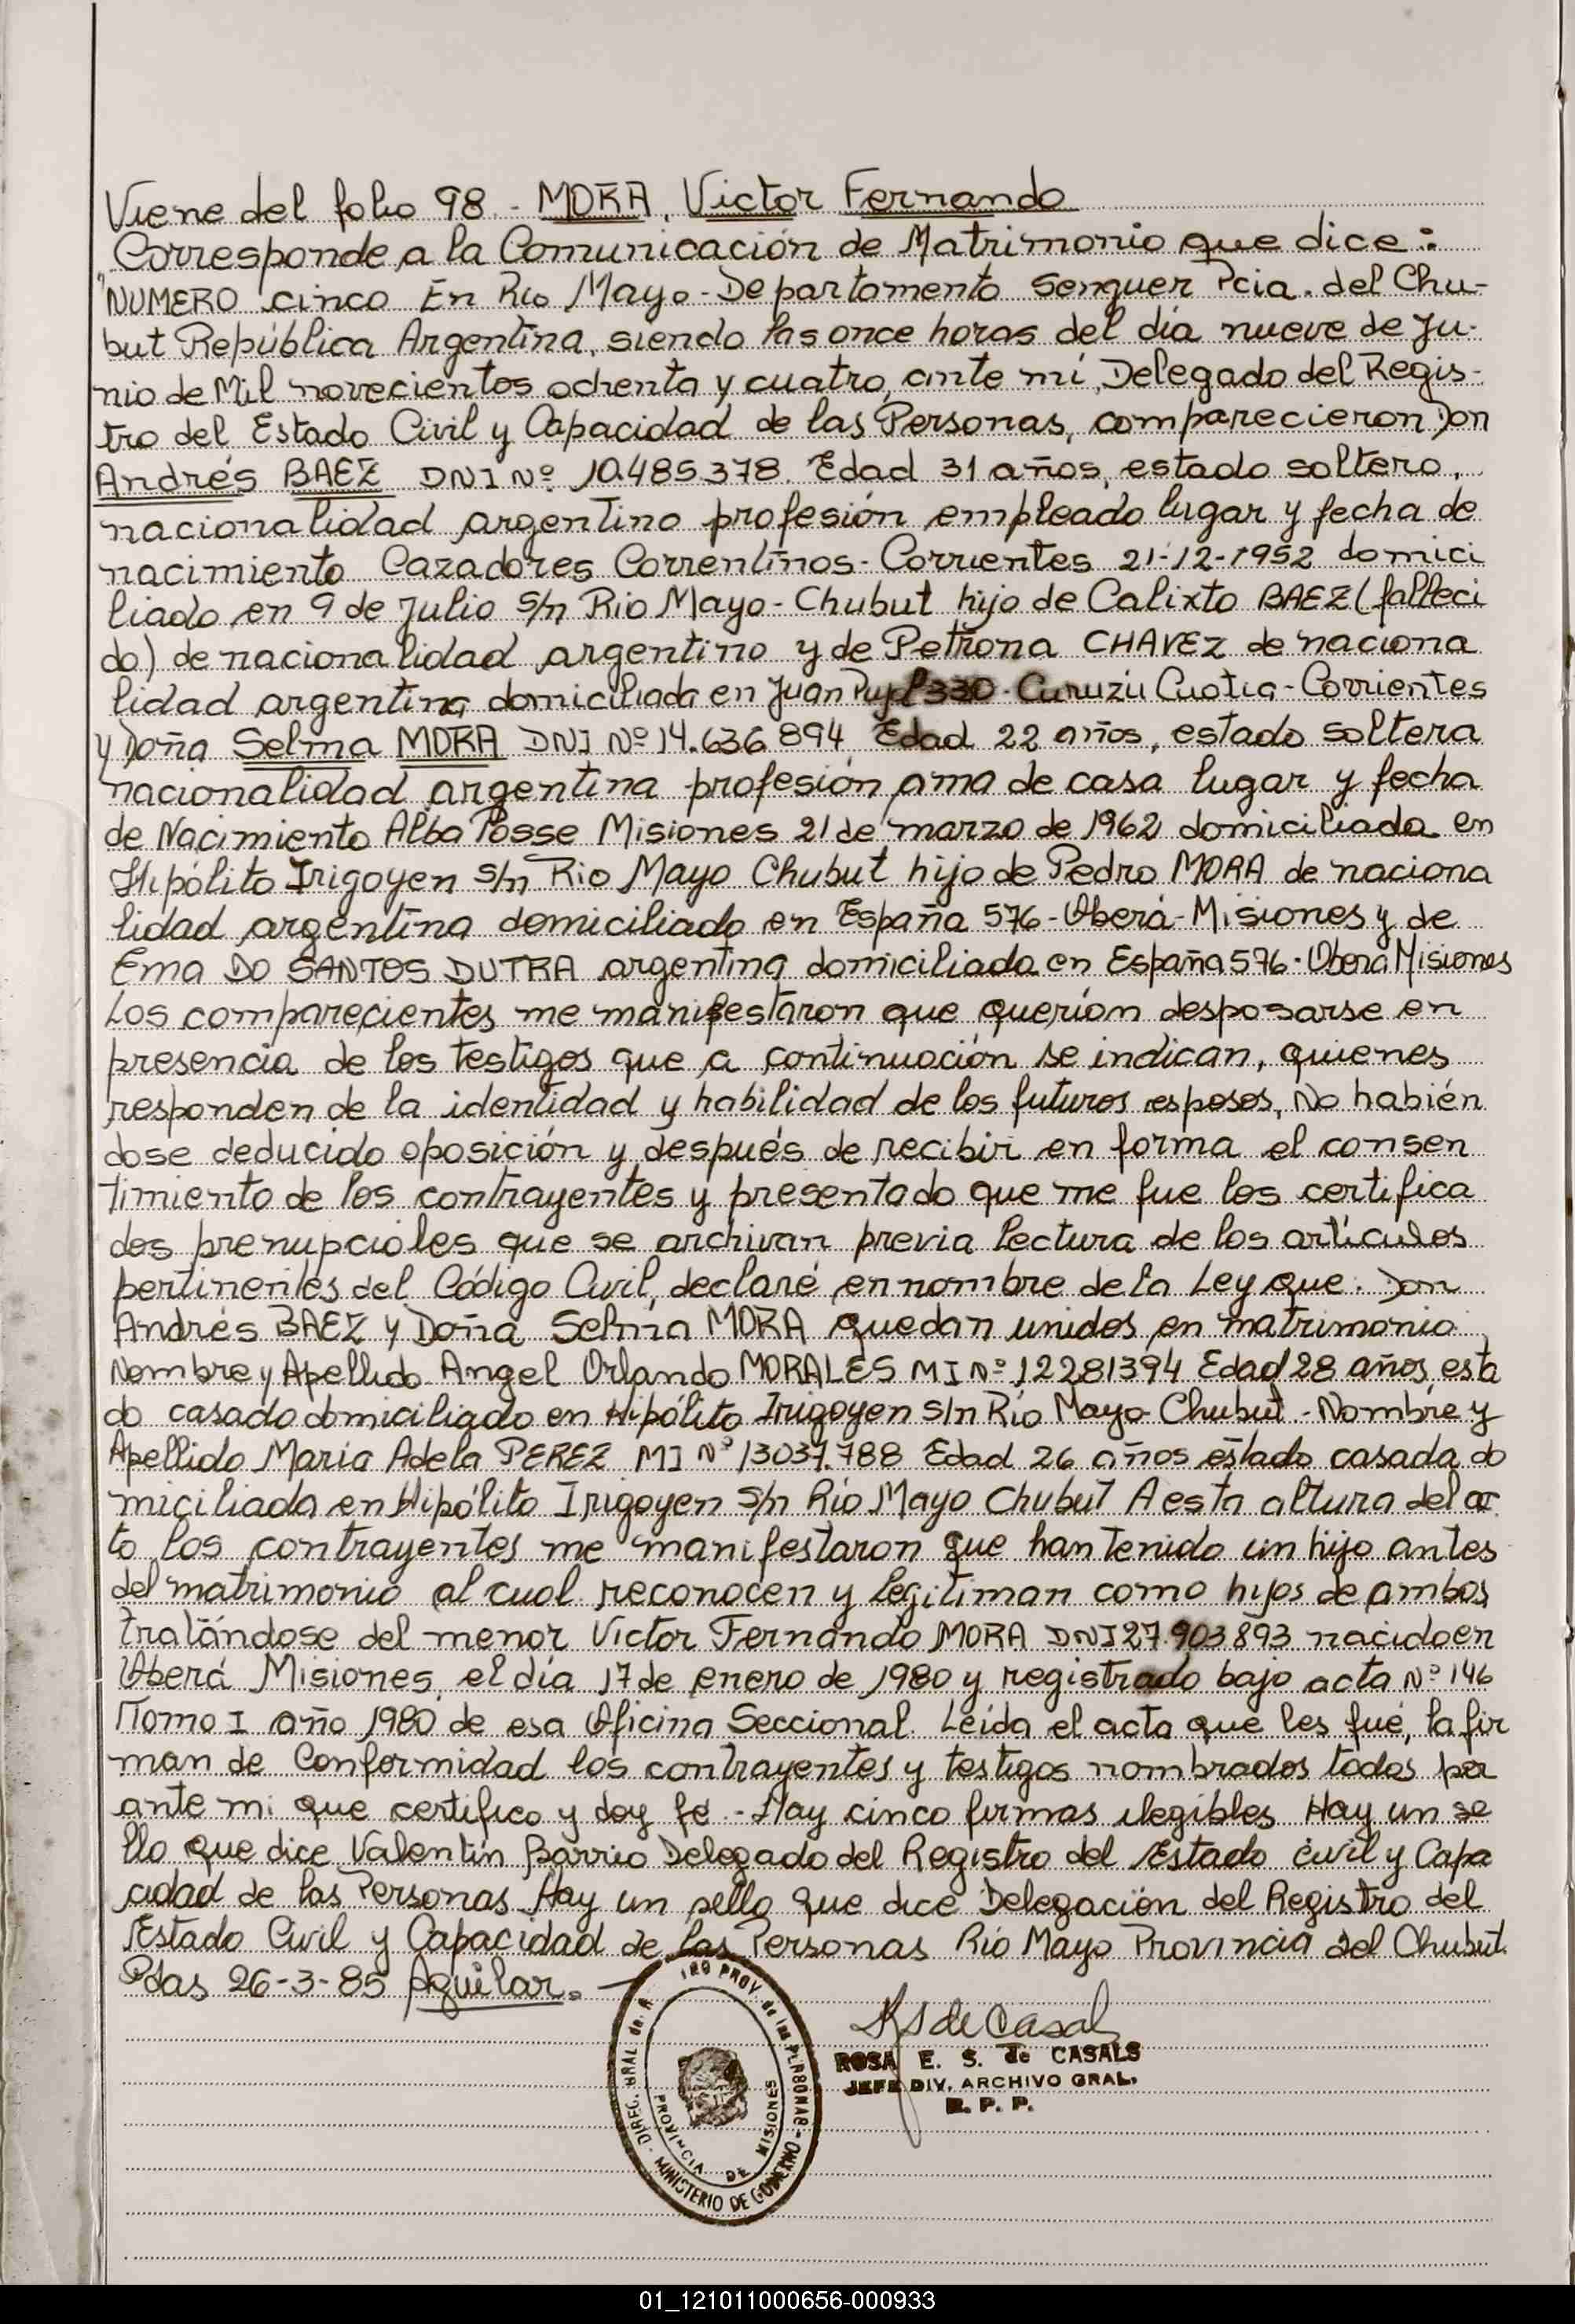 Viene del folio 98 - MORA, Victor Fernando
Corresponde a la Comunicación de Matrimonio que dice:
"NUMERO cinco En Rio Mayo - Departamento Senguer Pcia. del Chu-
but República Argentina, siendo las once horas del día nueve de Ju-
nio de Mil novecientos ochenta y cuatro, ante mí, Delegado del Regis-
tro del Estado Civil y Capacidad de las Personas, comparecieron Don
Andrés BAEZ DNI Nº 10.485.378. Edad 31 años, estado soltero,
nacionalidad argentino profesión empleado lugar y fecha de
nacimiento Cazadores Correntinos - Corrientes 21-12-1952 domici
liado en 9 de Julio s/n Rio Mayo - Chubut hijo de Calixto BAEZ (falleci
do) de nacionalidad argentino y de Petrona CHAVEZ de naciona
lidad argentina domiciliada en Juan Pujol 330 - Curuzú Cuatia - Corrientes
y Doña Selma MORA DNI Nº 14.636.894 Edad 22 años, estado soltera
nacionalidad argentina profesión ama de casa lugar y fecha
de Nacimiento Alba Posse Misiones 21 de marzo de 1962 domiciliada en
Hipólito Irigoyen s/n Rio Mayo Chubut hijo de Pedro MORA de naciona
lidad argentina domiciliado en España 576 - Oberá - Misiones y de
Ema DO SANTOS DUTRA argentina domiciliada en España 576 - Oberá Misiones
Los comparecientes me manifestaron que querían desposarse en
presencia de los testigos que a continuación se indican, quienes
responden de la identidad y habilidad de los futuros esposos, No habién
dose deducido oposición y después de recibir en forma el consen
timiento de los contrayentes y presentado que me fue los certifica
dos prenupciales que se archivan previa lectura de los artículos
pertinentes del Código Civil, declaré en nombre de la Ley que: Don
Andrés BAEZ y Doña Selma MORA quedan unidos en matrimonio
Nombre y Apellido Angel Orlando MORALES MI Nº 12281394 Edad 28 años, esta
do casado domiciliado en Hipólito Irigoyen s/n Río Mayo Chubut - Nombre y
Apellido Maria Adela PEREZ MI Nº 13037.788 Edad 26 años estado casada do
miciliada en Hipólito Irigoyen s/n Río Mayo Chubut A esta altura del ac
to los contrayentes me manifestaron que han tenido un hijo antes
del matrimonio al cual reconocen y legitiman como hijos de ambos
tratándose del menor Victor Fernando MORA DNI 27.903.893 nacido en
Oberá Misiones, el día 17 de enero de 1980 y registrado bajo acta Nº 146
Tomo I año 1980 de esa Oficina Seccional. Leída el acta que les fué, la fir
man de Conformidad los contrayentes y testigos nombrados todos por
ante mi que certifico y doy fé - Hay cinco firmas ilegibles Hay un se
llo que dice Valentín Barrio Delegado del Registro del Estado civil y Capa
cidad de las Personas Hay un sello que dice Delegación del Registro del
Estado Civil y Capacidad de las Personas Río Mayo Provincia del Chubut.
Pdas 26-3-85 Aguilar.-
DIREC. GRAL de. R IRO PROV. de las PERSONAS - MINISTERIO DE GOBIERNO -
PROVINCIA DE MISIONES
RS de Casals
ROSA E. S. de CASALS
JEFE DIV. ARCHIVO GRAL.
R. P. P.
01_121011000656-000933